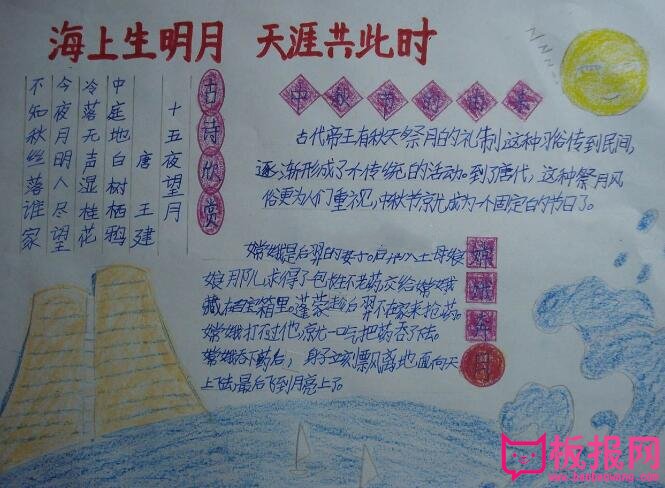 海上生明月 天涯共此时
古诗欣赏
十五夜望月
唐 王建
中庭地白树栖鸦
冷落无声湿桂花
今夜月明人尽望
不知秋丝落谁家
中秋节的由来
古代帝王有秋天祭月的礼制,这种习俗传到民间,
逐渐形成了个传统的活动。到了唐代,这种祭月风
俗更为人们重视,中秋节就成为一个固定的节日了。
嫦娥奔月
嫦娥是后羿的妻子。后羿从王母娘
娘那儿求得了包不老药交给嫦娥
藏在百宝箱里。蓬蒙趁后羿不在家来抢药。
嫦娥打不过他,就一口气把药吞了下去。
嫦娥吞下药后,身子立刻飘离地面向天
上飞去,最后飞到月亮上了。
NNNN
板报网
www.banbaowang.com